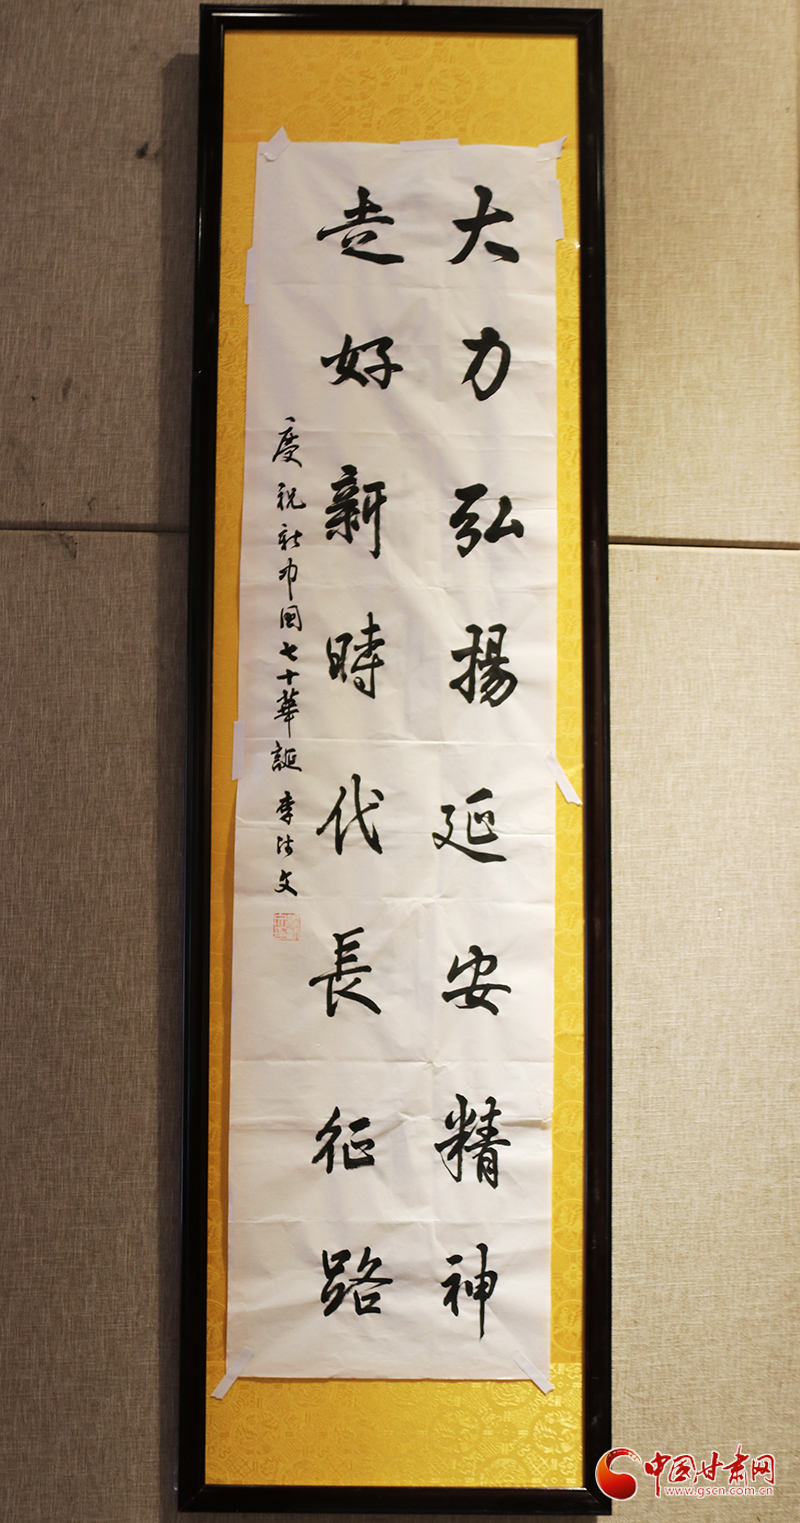 大力弘揚延安精神
走好新時代長征路
慶祝新中國七十華誕 李法文
中国甘肃网
www.gscn.com.cn